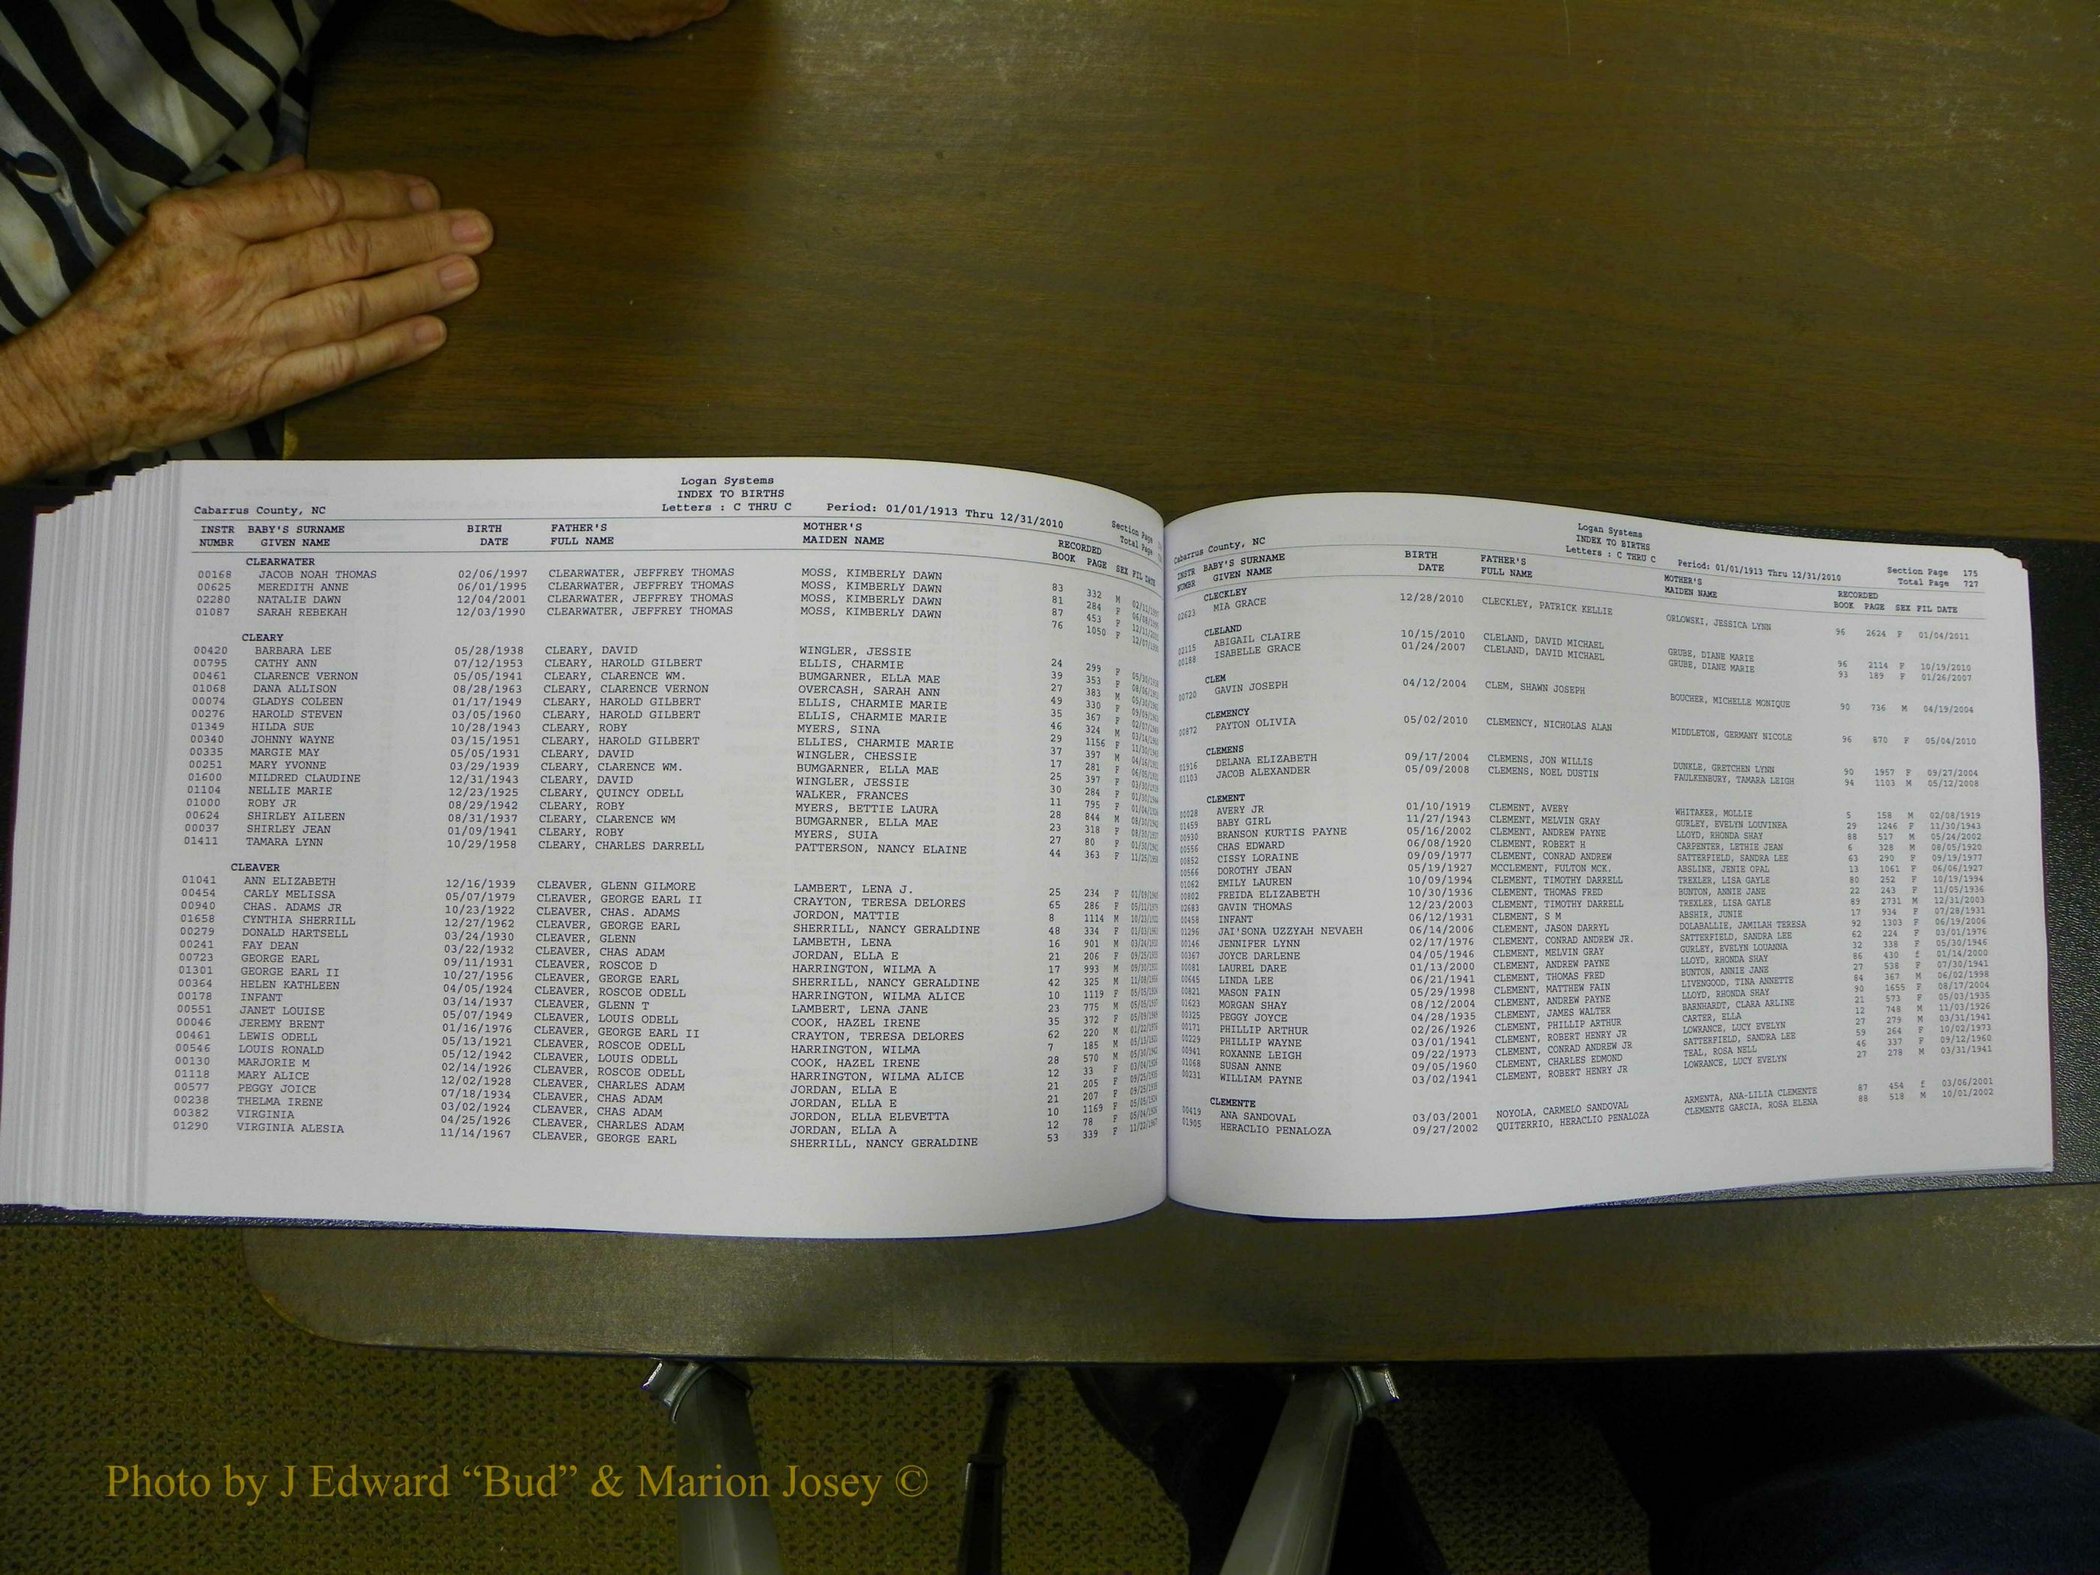 Logan Systems
INDEX TO BIRTHS
Cabarrus County, NC Letters : C THRU C Period: 01/01/1913 Thru 12/31/2010 Section Page
Total Page
INSTR BABY'S SURNAME BIRTH FATHER'S MOTHER'S RECORDED
NUMBR GIVEN NAME DATE FULL NAME MAIDEN NAME BOOK PAGE SEX FIL DATE
CLEARWATER
00168 JACOB NOAH THOMAS 02/06/1997 CLEARWATER, JEFFREY THOMAS MOSS, KIMBERLY DAWN 83 332 M
00625 MEREDITH ANNE 06/01/1995 CLEARWATER, JEFFREY THOMAS MOSS, KIMBERLY DAWN 81 284 F
02280 NATALIE DAWN 12/04/2001 CLEARWATER, JEFFREY THOMAS MOSS, KIMBERLY DAWN 87 453 F
01087 SARAH REBEKAH 12/03/1990 CLEARWATER, JEFFREY THOMAS MOSS, KIMBERLY DAWN 76 1050 F
CLEARY
00420 BARBARA LEE 05/28/1938 CLEARY, DAVID WINGLER, JESSIE 24 299 F
00795 CATHY ANN 07/12/1953 CLEARY, HAROLD GILBERT ELLIS, CHARMIE 39 353 F
00461 CLARENCE VERNON 05/05/1941 CLEARY, CLARENCE WM. BUMGARNER, ELLA MAE 27 383 M
01068 DANA ALLISON 08/28/1963 CLEARY, CLARENCE VERNON OVERCASH, SARAH ANN 49 330 F
00074 GLADYS COLEEN 01/17/1949 CLEARY, HAROLD GILBERT ELLIS, CHARMIE MARIE 35 367 F
00276 HAROLD STEVEN 03/05/1960 CLEARY, HAROLD GILBERT ELLIS, CHARMIE MARIE 46 324 M
01349 HILDA SUE 10/28/1943 CLEARY, ROBY MYERS, SINA 29 1156 F
00340 JOHNNY WAYNE 03/15/1951 CLEARY, HAROLD GILBERT ELLIES, CHARMIE MARIE 37 397 M
00335 MARGIE MAY 05/05/1931 CLEARY, DAVID WINGLER, CHESSIE 17 281 F
00251 MARY YVONNE 03/29/1939 CLEARY, CLARENCE WM. BUMGARNER, ELLA MAE 25 397 F
01600 MILDRED CLAUDINE 12/31/1943 CLEARY, DAVID WINGLER, JESSIE 30 284 F
01104 NELLIE MARIE 12/23/1925 CLEARY, QUINCY ODELL WALKER, FRANCES 11 795 F
01000 ROBY JR 08/29/1942 CLEARY, ROBY MYERS, BETTIE LAURA 28 844 M
00624 SHIRLEY AILEEN 08/31/1937 CLEARY, CLARENCE WM BUMGARNER, ELLA MAE 23 318 F
00037 SHIRLEY JEAN 01/09/1941 CLEARY, ROBY MYERS, SUIA 27 80 F
01411 TAMARA LYNN 10/29/1958 CLEARY, CHARLES DARRELL PATTERSON, NANCY ELAINE 44 363 F
CLEAVER
01041 ANN ELIZABETH 12/16/1939 CLEAVER, GLENN GILMORE LAMBERT, LENA J. 25 234 F
00454 CARLY MELISSA 05/07/1979 CLEAVER, GEORGE EARL II CRAYTON, TERESA DELORES 65 286 F
00940 CHAS. ADAMS JR 10/23/1922 CLEAVER, CHAS. ADAMS JORDON, MATTIE 8 1114 M
01658 CYNTHIA SHERRILL 12/27/1962 CLEAVER, GEORGE EARL SHERRILL, NANCY GERALDINE 48 334 F
00279 DONALD HARTSELL 03/24/1930 CLEAVER, GLENN LAMBETH, LENA 16 901 M
00241 FAY DEAN 03/22/1932 CLEAVER, CHAS ADAM JORDAN, ELLA E 21 206 F
00723 GEORGE EARL 09/11/1931 CLEAVER, ROSCOE D HARRINGTON, WILMA A 17 993 M
01301 GEORGE EARL II 10/27/1956 CLEAVER, GEORGE EARL SHERRILL, NANCY GERALDINE 42 325 M
00364 HELEN KATHLEEN 04/05/1924 CLEAVER, ROSCOE ODELL HARRINGTON, WILMA ALICE 10 1119 F
00178 INFANT 03/14/1937 CLEAVER, GLENN T LAMBERT, LENA JANE 23 775 M
00551 JANET LOUISE 05/07/1949 CLEAVER, LOUIS ODELL COOK, HAZEL IRENE 35 372 F
00046 JEREMY BRENT 01/16/1976 CLEAVER, GEORGE EARL II CRAYTON, TERESA DELORES 62 220 M
00461 LEWIS ODELL 05/13/1921 CLEAVER, ROSCOE ODELL HARRINGTON, WILMA 7 185 M
00546 LOUIS RONALD 05/12/1942 CLEAVER, LOUIS ODELL COOK, HAZEL IRENE 28 570 M
00130 MARJORIE M 02/14/1926 CLEAVER, ROSCOE ODELL HARRINGTON, WILMA ALICE 12 33 F
01118 MARY ALICE 12/02/1928 CLEAVER, CHARLES ADAM JORDAN, ELLA E 21 205 F
00577 PEGGY JOICE 07/18/1934 CLEAVER, CHAS ADAM JORDAN, ELLA E 21 207 F
00238 THELMA IRENE 03/02/1924 CLEAVER, CHAS ADAM JORDON, ELLA ELEVETTA 10 1169 F
00382 VIRGINIA 04/25/1926 CLEAVER, CHARLES ADAM JORDAN, ELLA A 12 78 F
01290 VIRGINIA ALESIA 11/14/1967 CLEAVER, GEORGE EARL SHERRILL, NANCY GERALDINE 53 339 F
Logan Systems
INDEX TO BIRTHS
Cabarrus County, NC Letters : C THRU C Period: 01/01/1913 Thru 12/31/2010 Section Page 175
Total Page 727
INSTR BABY'S SURNAME BIRTH FATHER'S MOTHER'S RECORDED
NUMBR GIVEN NAME DATE FULL NAME MAIDEN NAME BOOK PAGE SEX FIL DATE
CLECKLEY
02623 MIA GRACE 12/28/2010 CLECKLEY, PATRICK KELLIE ORLOWSKI, JESSICA LYNN 96 2624 F 01/04/2011
CLELAND
02115 ABIGAIL CLAIRE 10/15/2010 CLELAND, DAVID MICHAEL GRUBE, DIANE MARIE 96 2114 F 10/19/2010
00188 ISABELLE GRACE 01/24/2007 CLELAND, DAVID MICHAEL GRUBE, DIANE MARIE 93 189 F 01/26/2007
CLEM
00720 GAVIN JOSEPH 04/12/2004 CLEM, SHAWN JOSEPH BOUCHER, MICHELLE MONIQUE 90 736 M 04/19/2004
CLEMENCY
00872 PAYTON OLIVIA 05/02/2010 CLEMENCY, NICHOLAS ALAN MIDDLETON, GERMANY NICOLE 96 870 F 05/04/2010
CLEMENS
01916 DELANA ELIZABETH 09/17/2004 CLEMENS, JON WILLIS DUNKLE, GRETCHEN LYNN 90 1957 F 09/27/2004
01103 JACOB ALEXANDER 05/09/2008 CLEMENS, NOEL DUSTIN FAULKENBURY, TAMARA LEIGH 94 1103 M 05/12/2008
CLEMENT
00028 AVERY JR 01/10/1919 CLEMENT, AVERY WHITAKER, MOLLIE 5 158 M 02/08/1919
01459 BABY GIRL 11/27/1943 CLEMENT, MELVIN GRAY GURLEY, EVELYN LOUVINEA 29 1246 F 11/30/1943
00930 BRANSON KURTIS PAYNE 05/16/2002 CLEMENT, ANDREW PAYNE LLOYD, RHONDA SHAY 88 517 M 05/24/2002
00556 CHAS EDWARD 06/08/1920 CLEMENT, ROBERT H CARPENTER, LETHIE JEAN 6 328 M 08/05/1920
00852 CISSY LORAINE 09/09/1977 CLEMENT, CONRAD ANDREW SATTERFIELD, SANDRA LEE 63 290 F 09/19/1977
00566 DOROTHY JEAN 05/19/1927 MCCLEMENT, FULTON MCK. ABSLINE, JENIE OPAL 13 1061 F 06/06/1927
01062 EMILY LAUREN 10/09/1994 CLEMENT, TIMOTHY DARRELL TREXLER, LISA GAYLE 80 252 F 10/19/1994
00802 FREIDA ELIZABETH 10/30/1936 CLEMENT, THOMAS FRED BUNTON, ANNIE JANE 22 243 F 11/05/1936
02683 GAVIN THOMAS 12/23/2003 CLEMENT, TIMOTHY DARRELL TREXLER, LISA GAYLE 89 2731 M 12/31/2003
00458 INFANT 06/12/1931 CLEMENT, S M ABSHIR, JUNIE 17 934 F 07/28/1931
01296 JAI'SONA UZZYAH NEVAEH 06/14/2006 CLEMENT, JASON DARRYL DOLABALLIE, JAMILAH TERESA 92 1303 F 06/19/2006
00146 JENNIFER LYNN 02/17/1976 CLEMENT, CONRAD ANDREW JR. SATTERFIELD, SANDRA LEE 62 224 F 03/01/1976
00367 JOYCE DARLENE 04/05/1946 CLEMENT, MELVIN GRAY GURLEY, EVELYN LOUANNA 32 338 F 05/30/1946
00081 LAUREL DARE 01/13/2000 CLEMENT, ANDREW PAYNE LLOYD, RHONDA SHAY 86 430 f 01/14/2000
00645 LINDA LEE 06/21/1941 CLEMENT, THOMAS FRED BUNTON, ANNIE JANE 27 538 F 07/30/1941
00821 MASON FAIN 05/29/1998 CLEMENT, MATTHEW FAIN LIVENGOOD, TINA ANNETTE 84 367 M 06/02/1998
01623 MORGAN SHAY 08/12/2004 CLEMENT, ANDREW PAYNE LLOYD, RHONDA SHAY 90 1655 F 08/17/2004
00325 PEGGY JOYCE 04/28/1935 CLEMENT, JAMES WALTER BARNHARDT, CLARA ARLINE 21 573 F 05/03/1935
00171 PHILLIP ARTHUR 02/26/1926 CLEMENT, PHILLIP ARTHUR CARTER, ELLA 12 748 M 11/03/1926
00229 PHILLIP WAYNE 03/01/1941 CLEMENT, ROBERT HENRY JR LOWRANCE, LUCY EVELYN 27 279 M 03/31/1941
00941 ROXANNE LEIGH 09/22/1973 CLEMENT, CONRAD ANDREW JR SATTERFIELD, SANDRA LEE 59 264 F 10/02/1973
01068 SUSAN ANNE 09/05/1960 CLEMENT, CHARLES EDMOND TEAL, ROSA NELL 46 337 F 09/12/1960
00231 WILLIAM PAYNE 03/02/1941 CLEMENT, ROBERT HENRY JR LOWRANCE, LUCY EVELYN 27 278 M 03/31/1941
CLEMENTE
00419 ANA SANDOVAL 03/03/2001 NOYOLA, CARMELO SANDOVAL ARMENTA, ANA-LILIA CLEMENTE 87 454 f 03/06/2001
01905 HERACLIO PENALOZA 09/27/2002 QUITERRIO, HERACLIO PENALOZA CLEMENTE GARCIA, ROSA ELENA 88 518 M 10/01/2002
Photo by J Edward “Bud” & Marion Josey ©